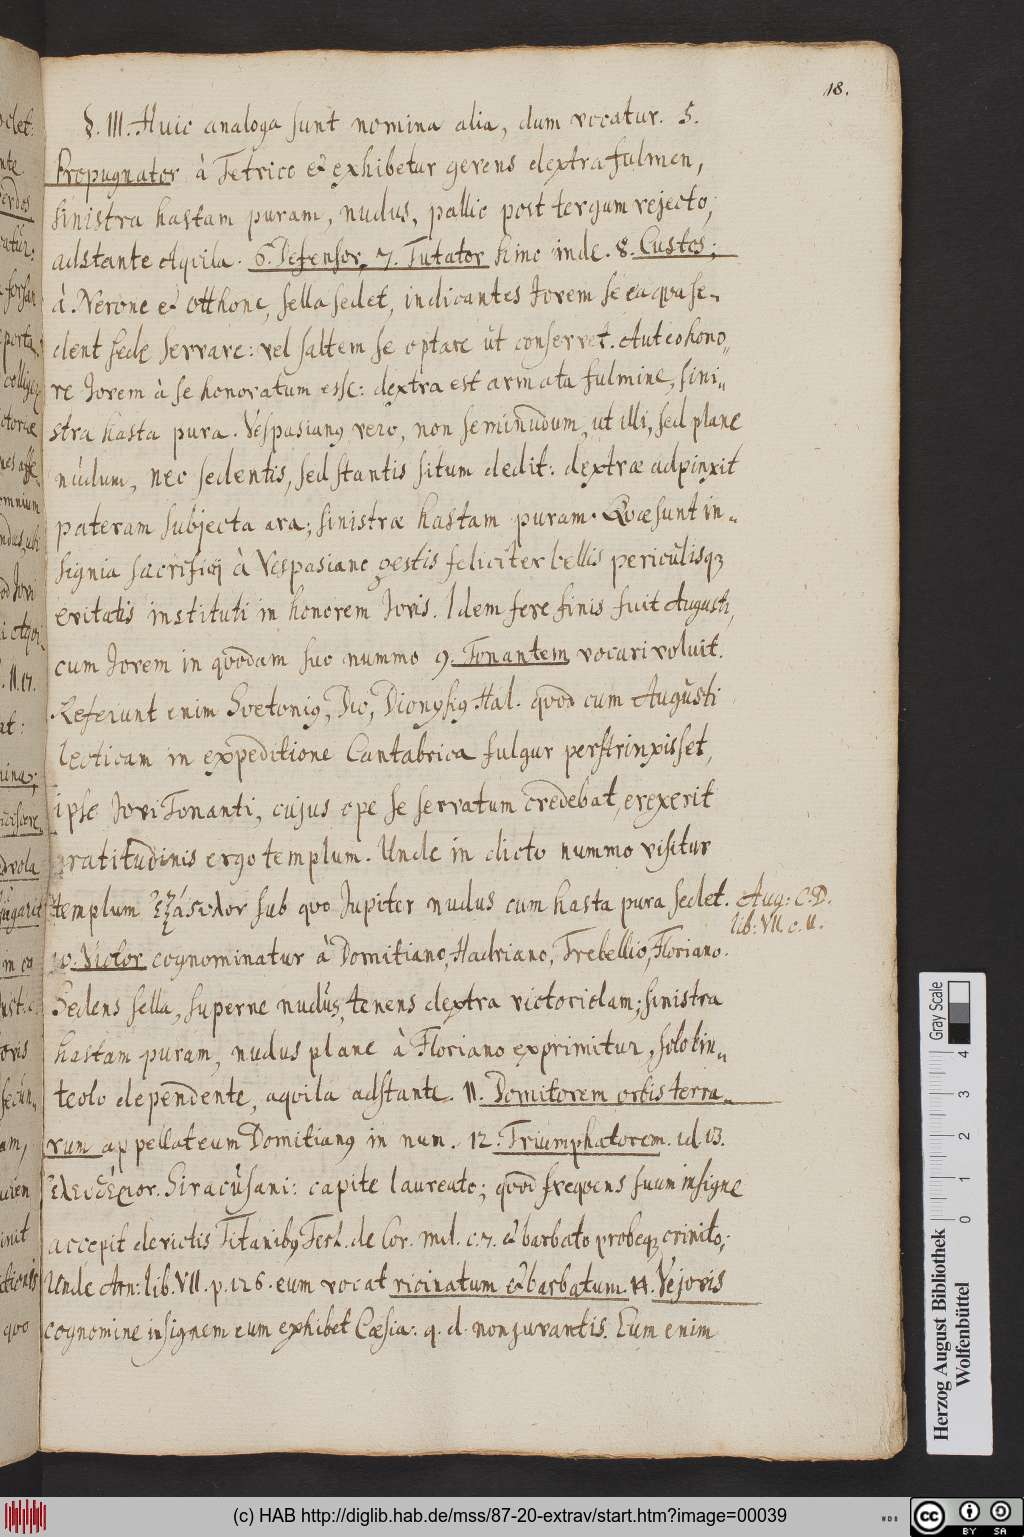 18.
§. III. Huic analoga sunt nomina alia, dum vocatur. 5.
Propugnator à Tetrico & exhibetur gerens dextra fulmen,
sinistra hastam puram, nudus, pallio post tergum rejecto;
adstante Aqvila. 6. Defensor. 7. Tutator hinc inde. 8. Custos;
à Nerone & Otthone, sella sedet, indicantes Jovem se ea qva se-
dent sede servare: vel saltem se optare ut conservet. Aut eo hono-
re Jovem à se honoratum esse: dextra est armata fulmine, sini-
stra hasta pura. Vespasiang vero, non seminudum, ut illi, sed plane
nudum, nec sedentis, sed stantis situm dedit: dextræ adpinxit
pateram subjecta ara; sinistræ hastam puram. Qvæ sunt in-
signia sacrificij à Vespasiano gestis feliciter bellis periculisq;
evitatis instituti in honorem Jovis. Idem fere finis fuit Augusti,
cum Jovem in qvodam suo nummo 9. Tonantem vocari voluit.
Referunt enim Svetonig, Dio, Dionysig Hal. qvod cum Augusti
lecticam in expeditione Cantabrica fulgur perstrinxisset,
ipse Jovi Tonanti, cujus ope se servatum credebat, erexerit
gratitudinis ergo templum. Unde in dicto nummo visitur
templum ἑξάςυλον sub qvo Jupiter nudus cum hasta pura sedet. Aug: C. D.
lib: VII. c. 11.
10. Victor cognominatur à Domitiano, Hadriano, Trebellio, Floriano.
Sedens sella, superne nudus, tenens dextra victoriolam; sinistra
hastam puram, nudus plane à Floriano exprimitur, solo lin-
teolo dependente, aqvila adstante. 11. Domitorem orbis terra-
rum appellat eum Domitiang in num. 12. Triumphatorem. id. 13.
ἐλευθέριον. Siracusani: capite laureato; qvod freqvens suum insigne
accepit devictis Titanibg Tert. de Cor. mil. c. 7. & barbato probeq; crinito;
Unde Arn: lib. VII. p. 126. eum vocat ricinatum & barbatum. 14. Vejovis
cognomine insignem eum exhibet Cæsia: q. d. non juvantis. Eum enim
Gray Scale
4
3
2
1
0
Herzog August Bibliothek
Wolfenbüttel
(c) HAB http://diglib.hab.de/mss/87-20-extrav/start.htm?image=00039
cc BY SA